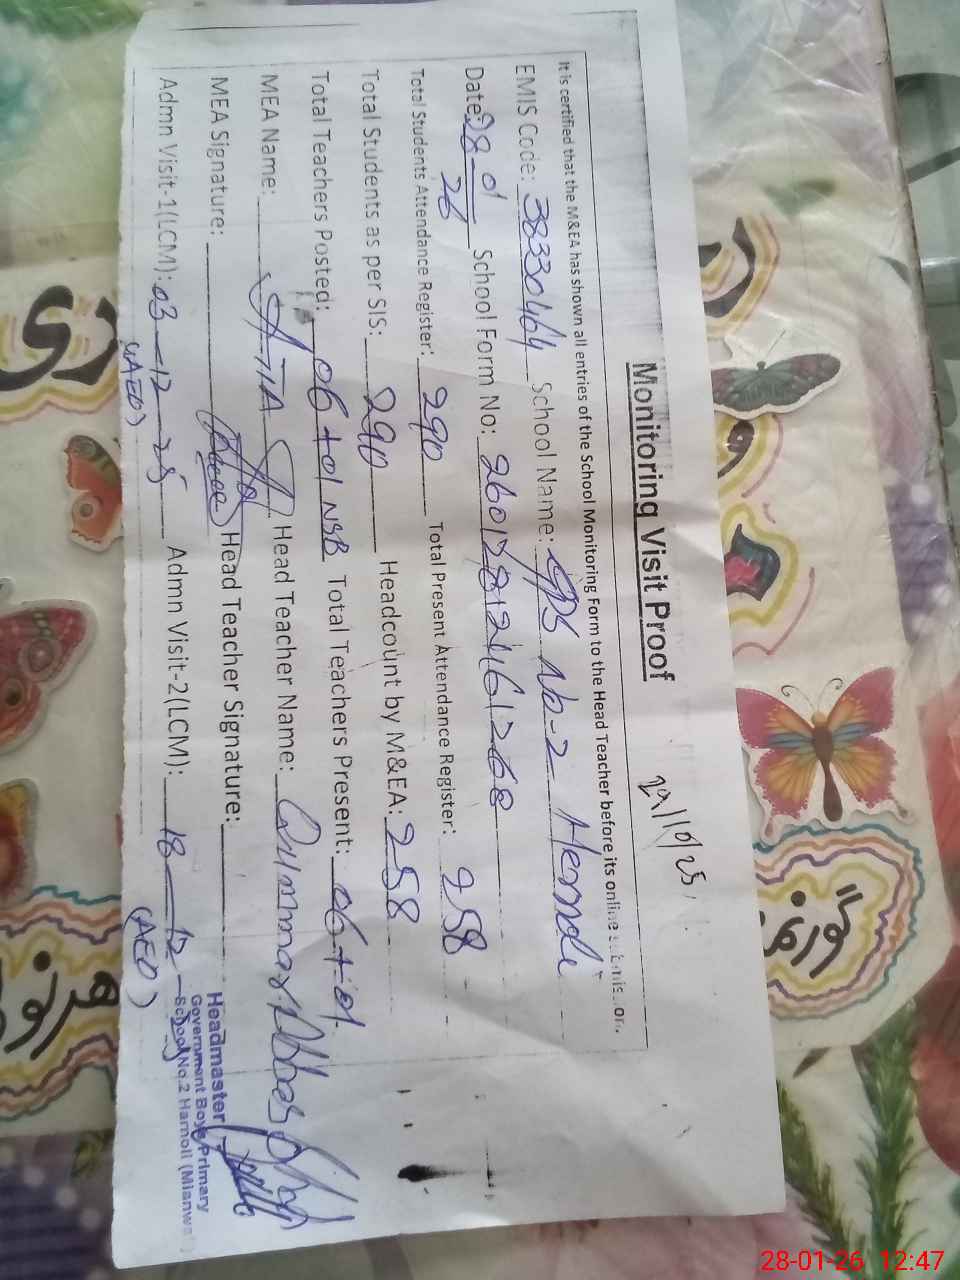 Monitoring Visit Proof
24/10/25
It is certified that the M&EA has shown all entries of the School Monitoring Form to the Head Teacher before its online
EMIS Code: 38330464 School Name: GPS No-2 Harnoli
Date: 28-01-26 School Form No:
Total Students Attendance Register: 290 Total Present Attendance Register: 258
Total Students as per SIS: 290 Headcount by M&EA: 258
Total Teachers Posted: 06 + 01 NSB Total Teachers Present: 06 + 01
MEA Name: Head Teacher Name: Qummar Abbas
MEA Signature: Head Teacher Signature:
Admn Visit-1(LCM): 03-12-25 Admn Visit-2(LCM): 18-12-25
(AEO) (AEO)
Headmaster
Government Boys Primary
School No.2 Harnoli (Mianwa
28-01-26 12:47